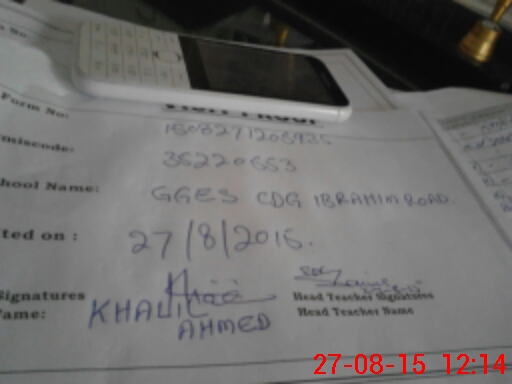 Form No:
miscode: 35220553
hool Name: GGES CDG IBRAHIM ROAD.
ted on : 27/8/2015.
Signatures
Head Teacher Signatures
ame: KHALIL AHMED
Head Teacher Name
27-08-15 12:14